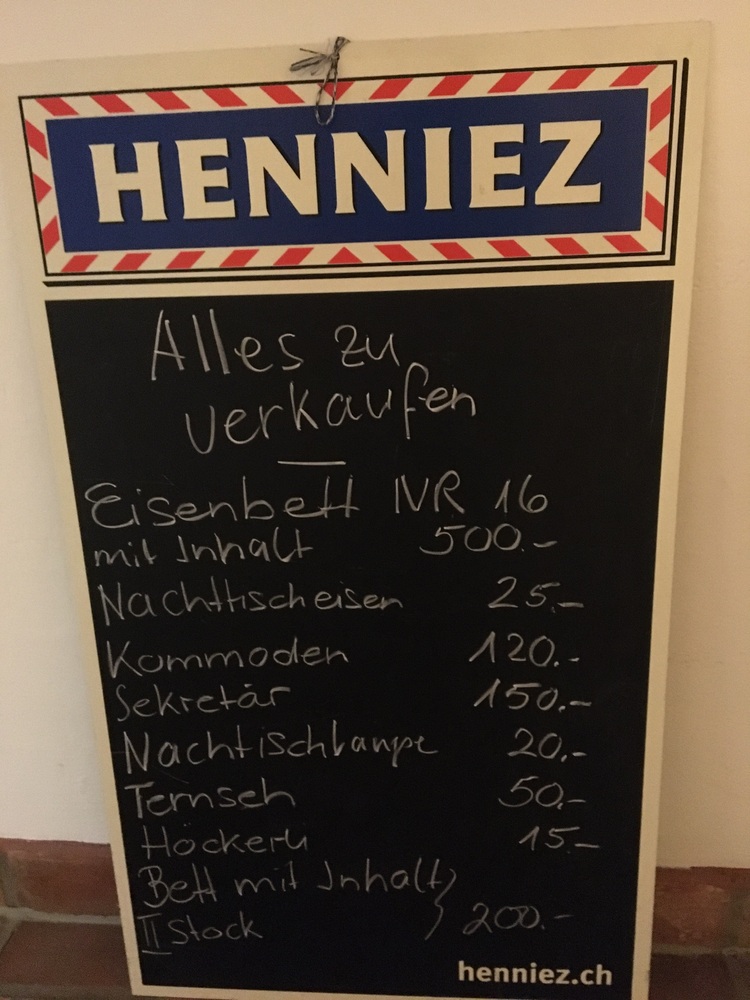 HENNIEZ
Alles zu
verkaufen
Eisenbett NR 16
mit Inhalt 500.-
Nachttischeisen 25.-
Kommoden 120.-
Sekretär 150.-
Nachtischlampe 20.-
Fernseh 50.-
Höckerli 15.-
Bett mit Inhalt }
II Stock 200.-
henniez.ch